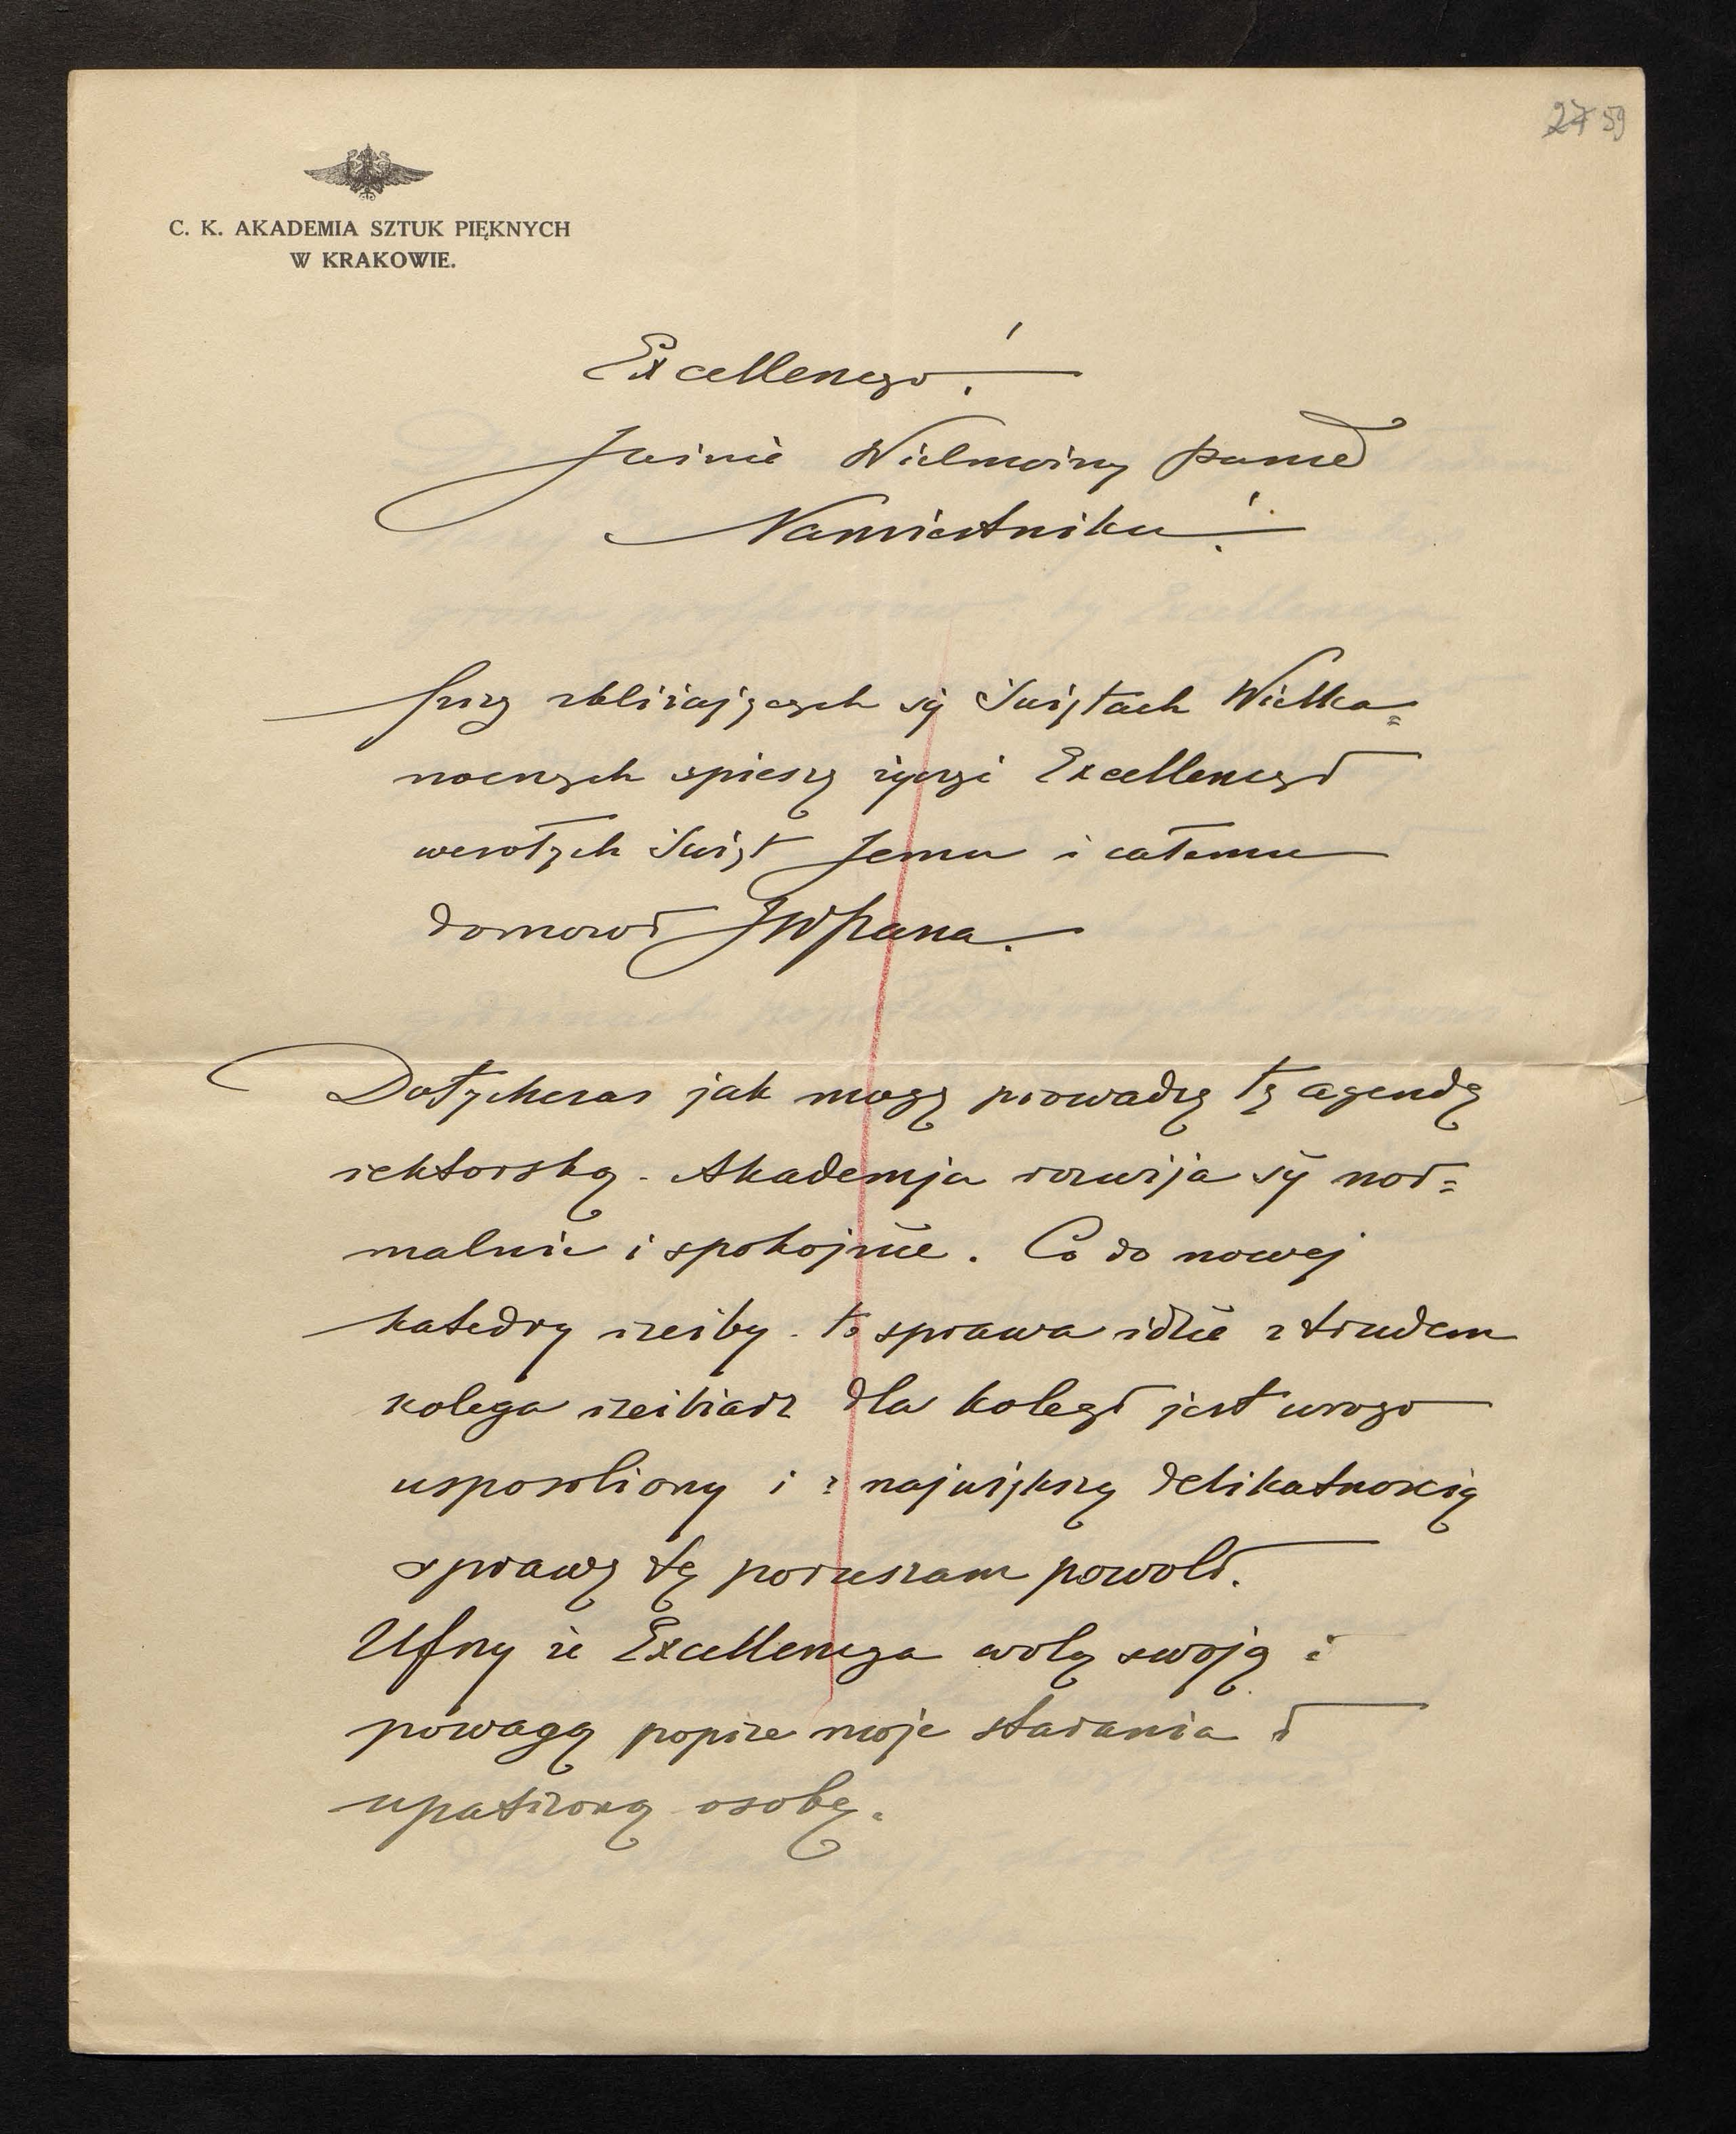 27 59
C. K. AKADEMIA SZTUK PIĘKNYCH
W KRAKOWIE.
Excellencyo!
Jaśnie Wielmożny Panie
Namiestniku!
Przy zbliżających się Świętach Wielka=
nocnych spieszę życzyć Excellencyi
wesołych Świąt Jemu i całemu
domowi JWPana.
Dotychczas jak mogę prowadzę tę agendę
rektorską. Akademja rozwija się nor=
malnie i spokojnie. Co do nowej
katedry rzeźby - to sprawa idzie z trudem
kolega rzeźbiarz dla kolegi jest wrogo
usposobiony i z największą delikatnością
sprawę tę poruszam powoli.
Ufny że Excellencya wolą swoją i
powagą poprze moje starania i
upatrzoną osobę.